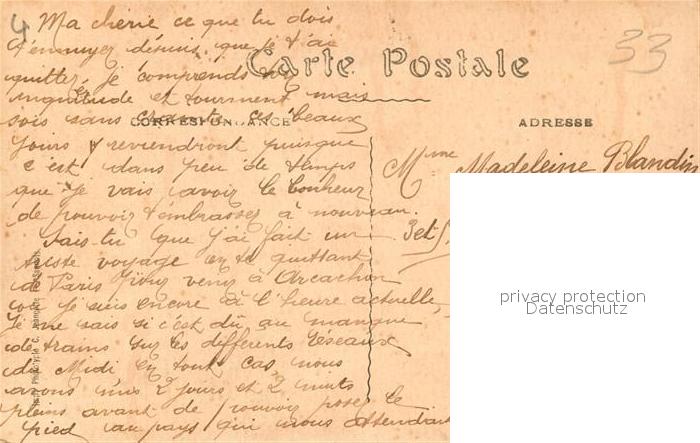 4 Ma chérie ce que tu dois
t'ennuyer depuis que je t'ai
quitté, je comprends ton
inquiétude et tourment mais
sois sans crainte ces beaux
jours reviendront puisque
c'est dans peu de temps
que je vais avoir le bonheur
de pouvoir t'embrasser à nouveau.
Sais-tu que j'ai fait un
triste voyage en te quittant
de Paris pour venir à Arcachon
où je suis encore à l'heure actuelle,
Je ne sais si c'est dû au manque
de trains sur les différents réseaux
du Midi en tout cas, nous
avons mis 2 jours et 2 nuits
pleins avant de pouvoir poser le
pied au pays qui nous attendait
Carte Postale
CORRESPONDANCE
ADRESSE
33
Mme Madeleine Blandin
3 et 5,
privacy protection
Datenschutz